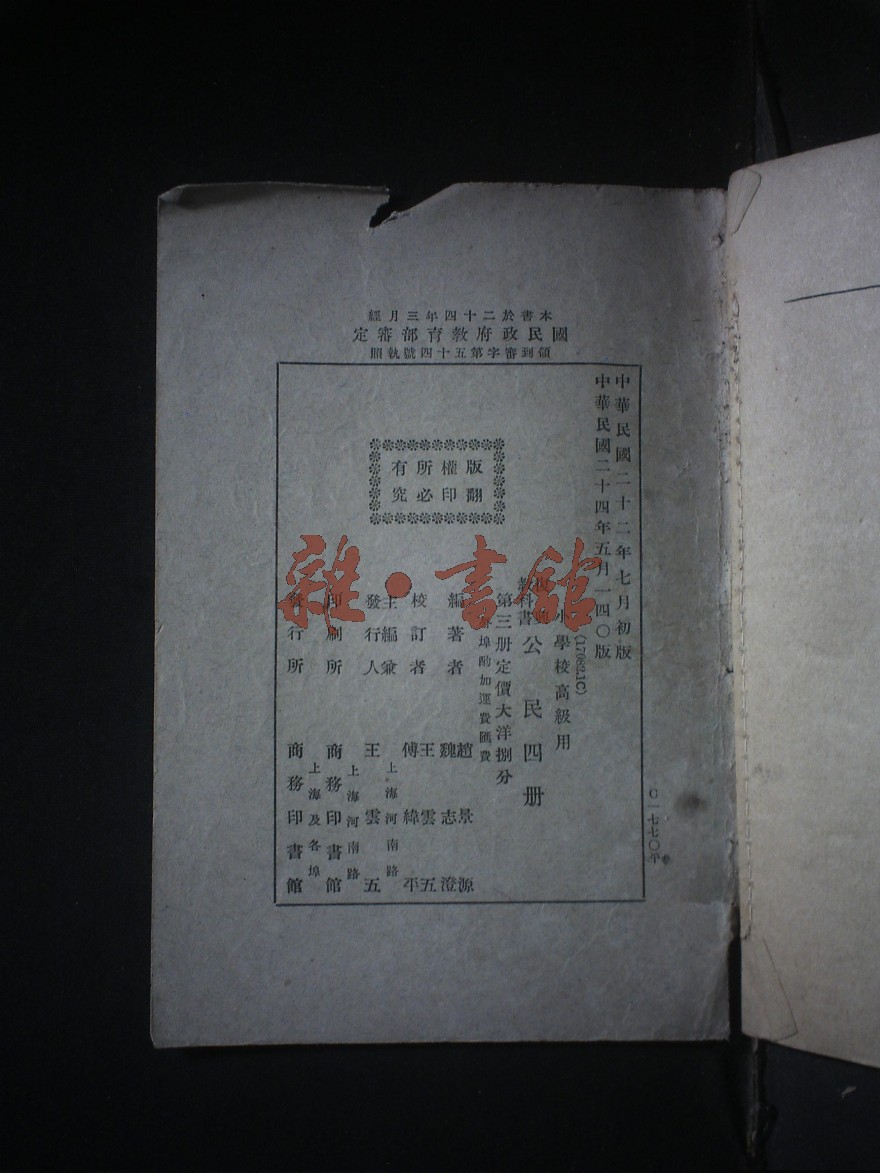 本書於二十四年三月經
國民政府教育部審定
領到審字第五十四號執照
中華民國二十二年七月初版
中華民國二十四年五月一四〇版
(17082.1C)
小學校高級用
教科書 公民四册
第三册定價大洋捌分
埠酌加運費匯費
版權所有
翻印必究
編著者 趙景源 魏志澄
校訂者 王雲五 傅緯平
主編兼發行人 王雲五 上海河南路
印刷所 商務印書館 上海河南路
發行所 商務印書館 上海及各埠
C一七七〇平
雜·書館